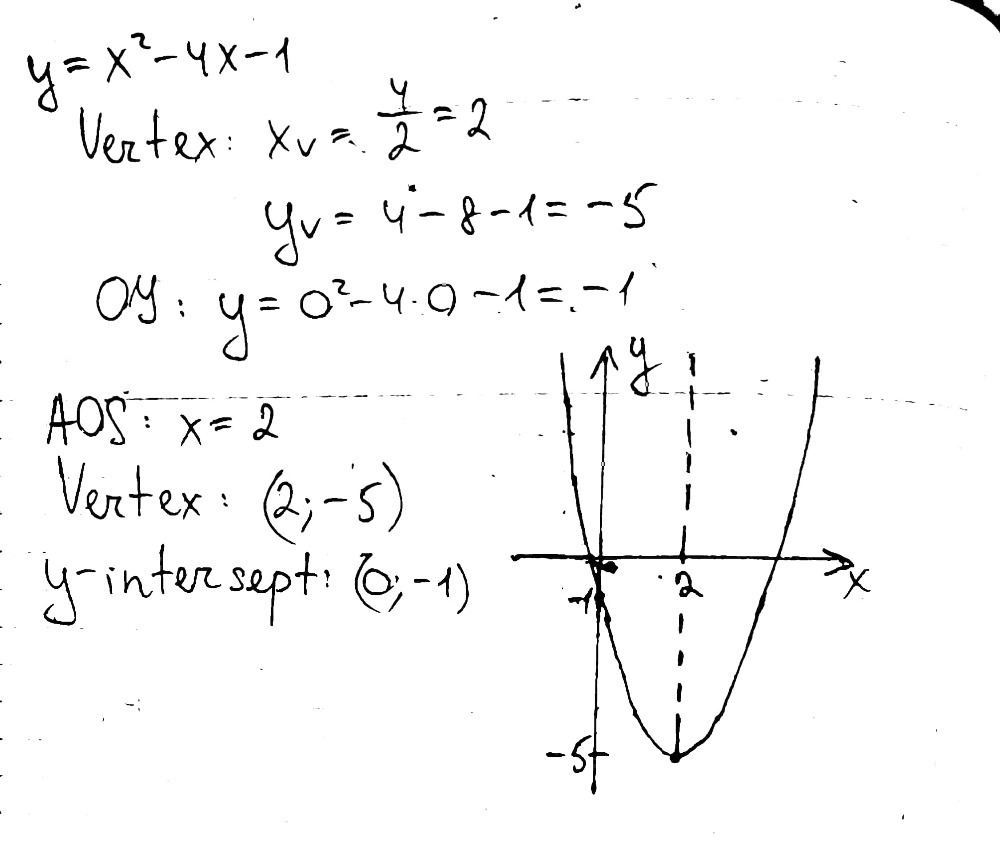 y = x² - 4x - 1
Vertex: xᵥ = 4/2 = 2
yᵥ = 4 - 8 - 1 = -5
OY: y = 0² - 4·0 - 1 = -1
AOS: x = 2
Vertex: (2; -5)
y-intersept: (0; -1)
y
x
2
-1
-5